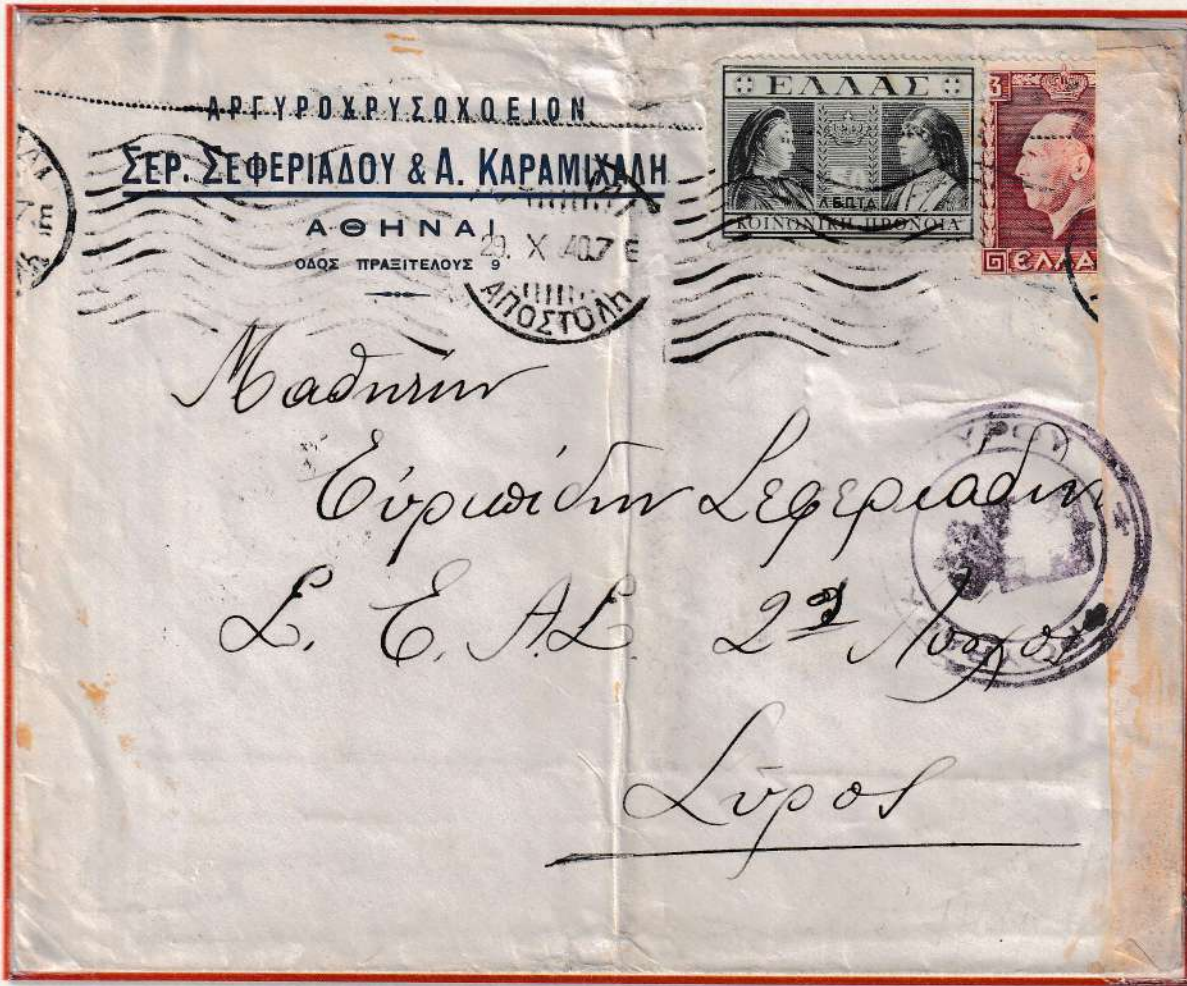 ΑΡΓΥΡΟΧΡΥΣΟΧΟΕΙΟΝ
ΣΕΡ. ΣΕΦΕΡΙΑΔΟΥ & Α. ΚΑΡΑΜΙΧΑΛΗ
ΑΘΗΝΑΙ
ΟΔΟΣ ΠΡΑΞΙΤΕΛΟΥΣ 9
29. X 40.7 Ε
ΑΠΟΣΤΟΛΗ
ΕΛΛΑΣ
50
ΛΕΠΤΑ
ΚΟΙΝΩΝΙΚΗ ΠΡΟΝΟΙΑ
3
ΕΛΛΑ
Μαθητήν
Εὐριπίδην Σεφεριάδην
Σ. Ε. Α. Σ. 2ος Λόχος
Σύρος
ΥΡΟΥ